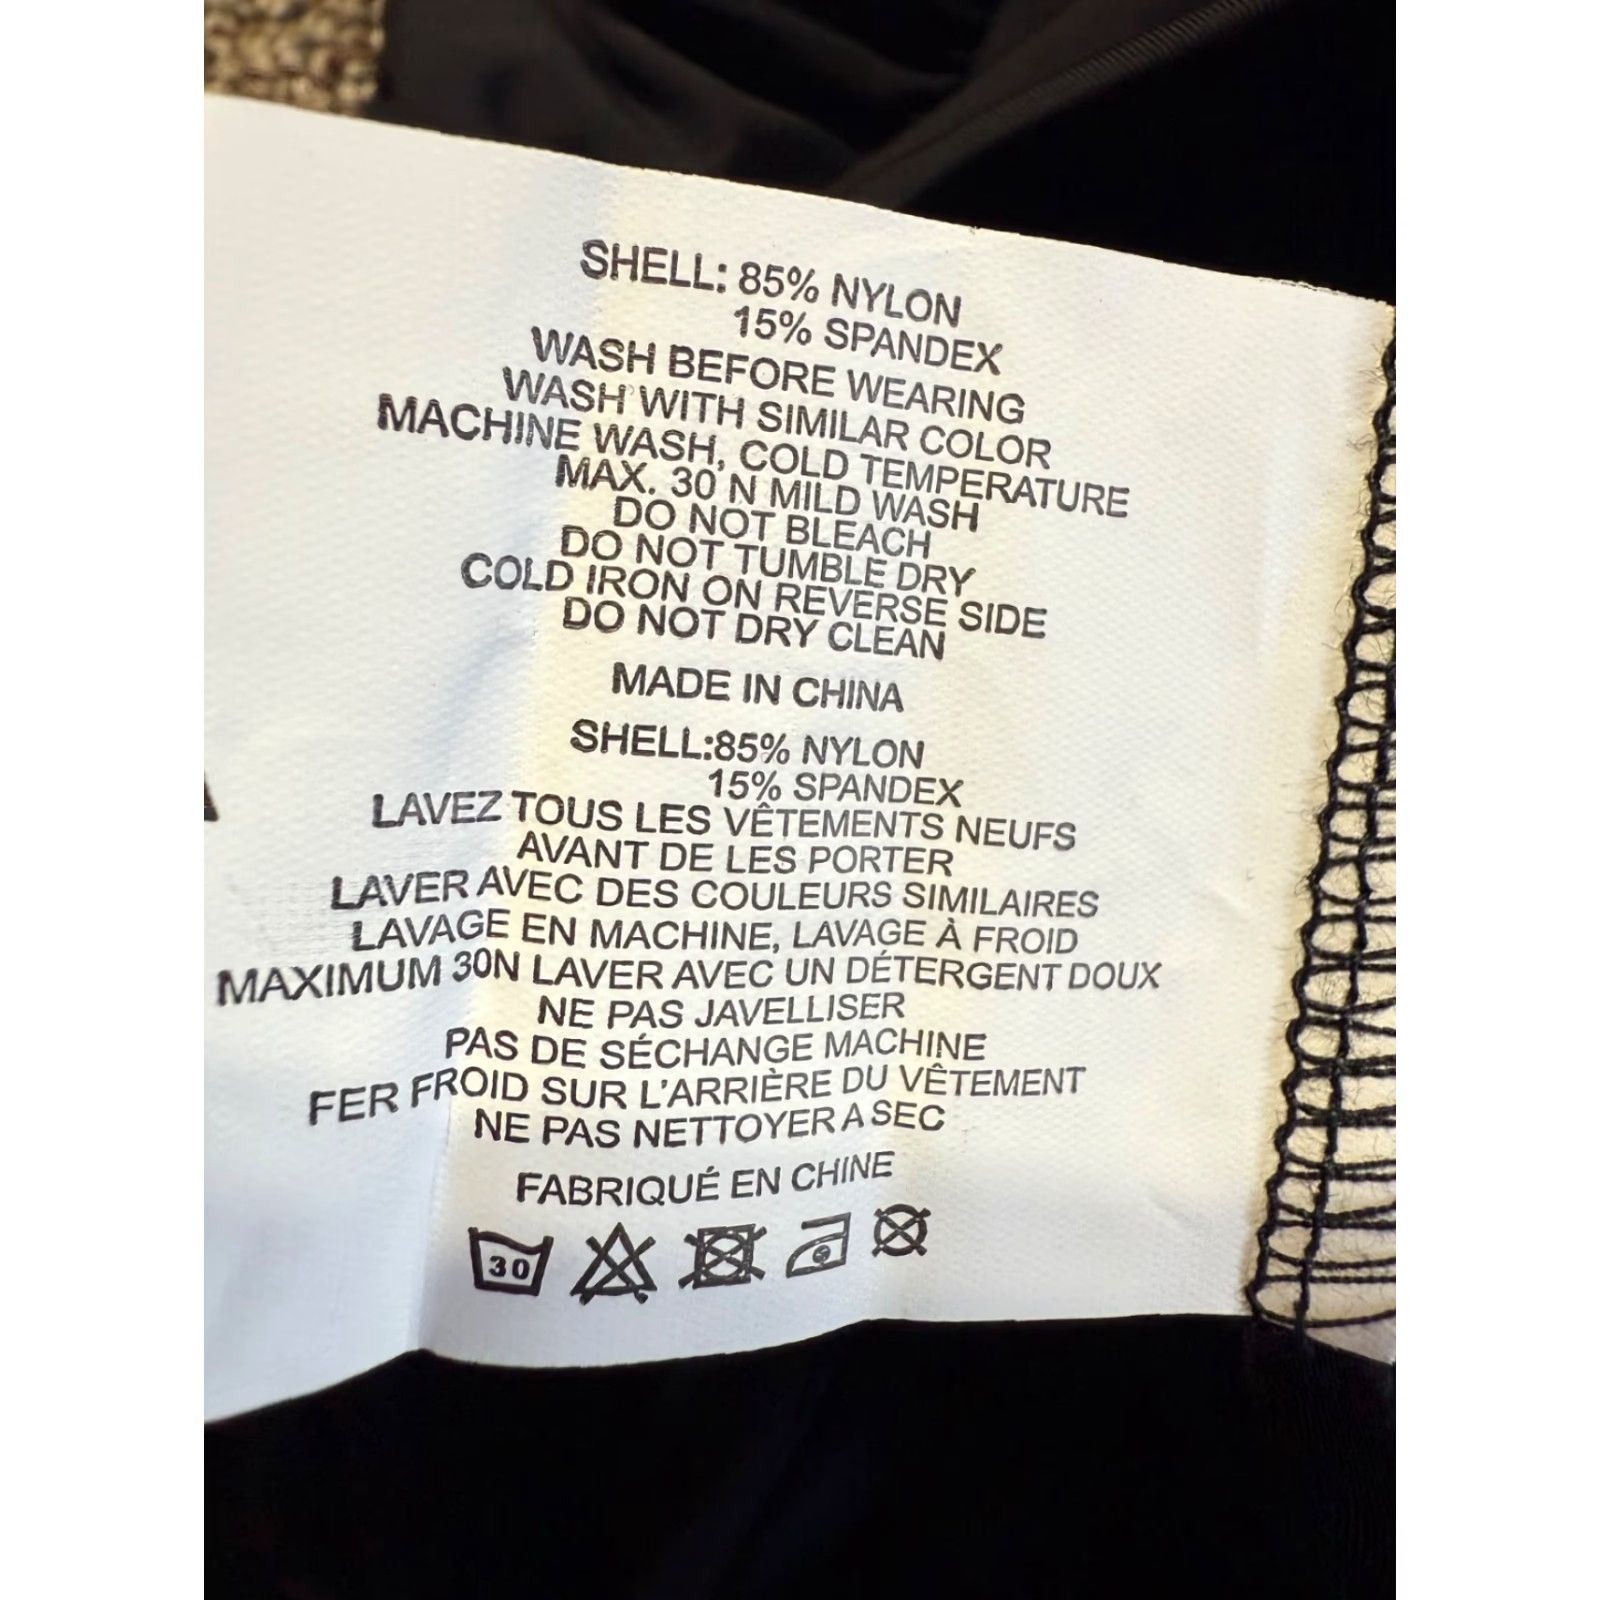 SHELL: 85% NYLON
15% SPANDEX
WASH BEFORE WEARING
WASH WITH SIMILAR COLOR
MACHINE WASH, COLD TEMPERATURE
MAX. 30 N MILD WASH
DO NOT BLEACH
DO NOT TUMBLE DRY
COLD IRON ON REVERSE SIDE
DO NOT DRY CLEAN
MADE IN CHINA
SHELL:85% NYLON
15% SPANDEX
LAVEZ TOUS LES VÊTEMENTS NEUFS
AVANT DE LES PORTER
LAVER AVEC DES COULEURS SIMILAIRES
LAVAGE EN MACHINE, LAVAGE À FROID
MAXIMUM 30N LAVER AVEC UN DÉTERGENT DOUX
NE PAS JAVELLISER
PAS DE SÉCHANGE MACHINE
FER FROID SUR L'ARRIÈRE DU VÊTEMENT
NE PAS NETTOYER A SEC
FABRIQUÉ EN CHINE
30